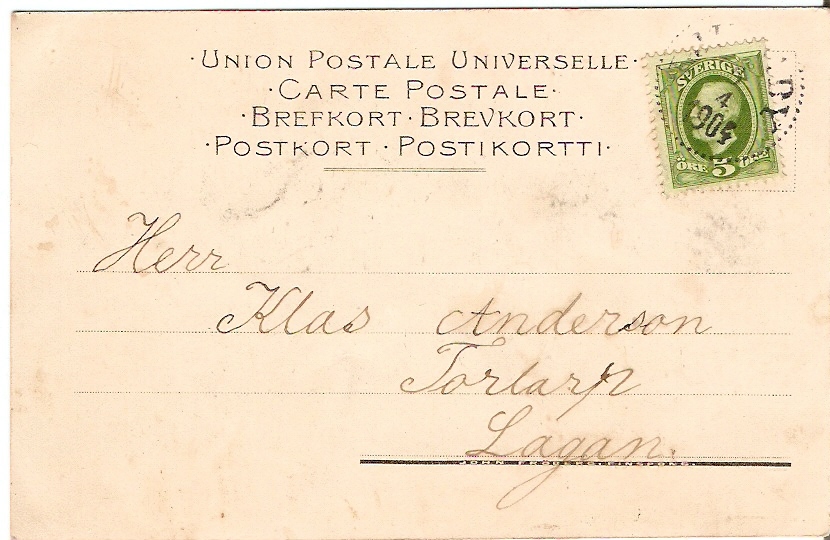 ·UNION POSTALE UNIVERSELLE·
·CARTE POSTALE·
·BREFKORT·BREVKORT·
·POSTKORT·POSTIKORTTI·
SVERIGE
4
1904
ÖRE 5 ÖRE
Herr
Klas Anderson
Torlarp
Lagan.
JOHN